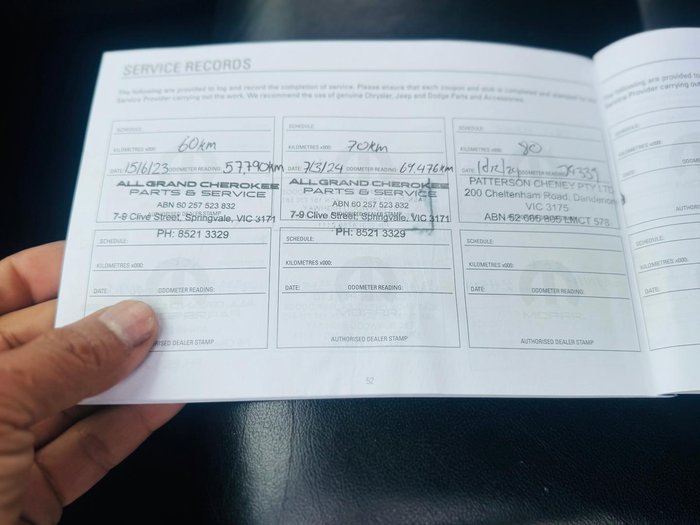 SERVICE RECORDS
The following are provided to log and record the completion of service. Please ensure that each coupon and stub is completed and
Service Provider carrying out the work. We recommend the use of genuine Chrysler, Jeep and Dodge Parts and Accessories.
SCHEDULE:
KILOMETRES x000: 60km
DATE: 15/6/23 ODOMETER READING: 57,790km
ALL GRAND CHEROKEE
PARTS & SERVICE
ABN 60 257 523 832
7-9 Clive Street, Springvale, VIC 3171
PH: 8521 3329
SCHEDULE:
KILOMETRES x000: 70km
DATE: 7/3/24 ODOMETER READING: 69,476km
ALL GRAND CHEROKEE
PARTS & SERVICE
ABN 60 257 523 832
7-9 Clive Street, Springvale, VIC 3171
PH: 8521 3329
SCHEDULE:
KILOMETRES x000: 80
DATE: ODOMETER READING:
PATTERSON CHENEY PTY LTD
200 Cheltenham Road, Dandenong
VIC 3175
ABN LMCT 578
SCHEDULE:
KILOMETRES x000:
DATE: ODOMETER READING:
MOPAR
AUTHORISED DEALER STAMP
SCHEDULE:
KILOMETRES x000:
DATE: ODOMETER READING:
MOPAR
AUTHORISED DEALER STAMP
SCHEDULE:
KILOMETRES x000:
DATE: ODOMETER READING:
MOPAR
AUTHORISED DEALER STAMP
52
The following are provided to
Service Provider carrying out
SCHEDULE:
KILOMETRES x000:
DATE:
SCHEDULE:
KILOMETRES x000:
DATE: